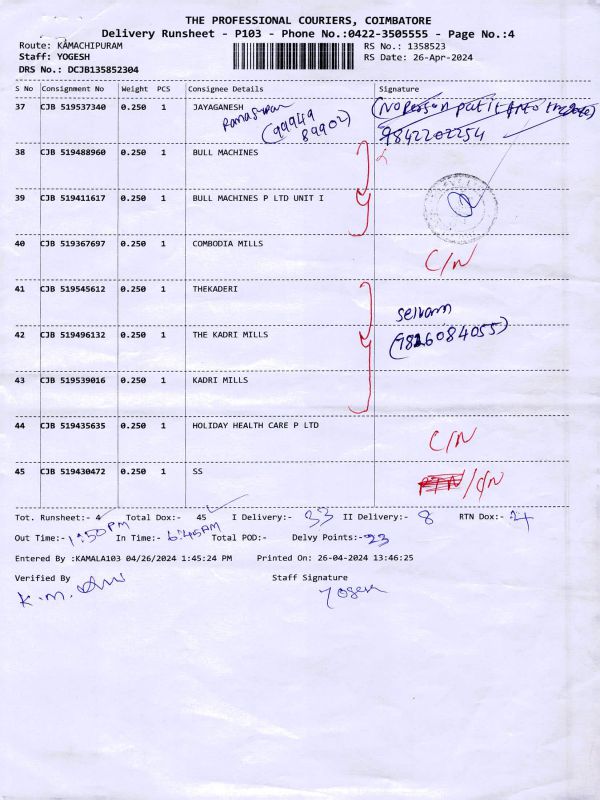 THE PROFESSIONAL COURIERS, COIMBATORE
Delivery Runsheet - P103 - Phone No.:0422-3505555 - Page No.:4
Route: KAMACHIPURAM
RS No.: 1358523
Staff: YOGESH
RS Date: 26-Apr-2024
DRS No.: DCJB135852304
S No Consignment No Weight PCS Consignee Details Signature
37 CJB 519537340 0.250 1 JAYAGANESH
(99949
89902)
(No Person put it
9842202254
38 CJB 519488960 0.250 1 BULL MACHINES
39 CJB 519411617 0.250 1 BULL MACHINES P LTD UNIT I
40 CJB 519367697 0.250 1 COMBODIA MILLS C/N
41 CJB 519545612 0.250 1 THEKADERI
Selvam
42 CJB 519496132 0.250 1 THE KADRI MILLS
43 CJB 519539016 0.250 1 KADRI MILLS
44 CJB 519435635 0.250 1 HOLIDAY HEALTH CARE P LTD C/N
45 CJB 519430472 0.250 1 SS /C/N
Tot. Runsheet:- 4 Total Dox:- 45 I Delivery:- 33 II Delivery:- 8 RTN Dox:- 4
Out Time:- 1:50PM In Time:- 6:45PM Total POD:- Delvy Points:- 23
Entered By :KAMALA103 04/26/2024 1:45:24 PM Printed On: 26-04-2024 13:46:25
Verified By Staff Signature
K.M. Yogesh